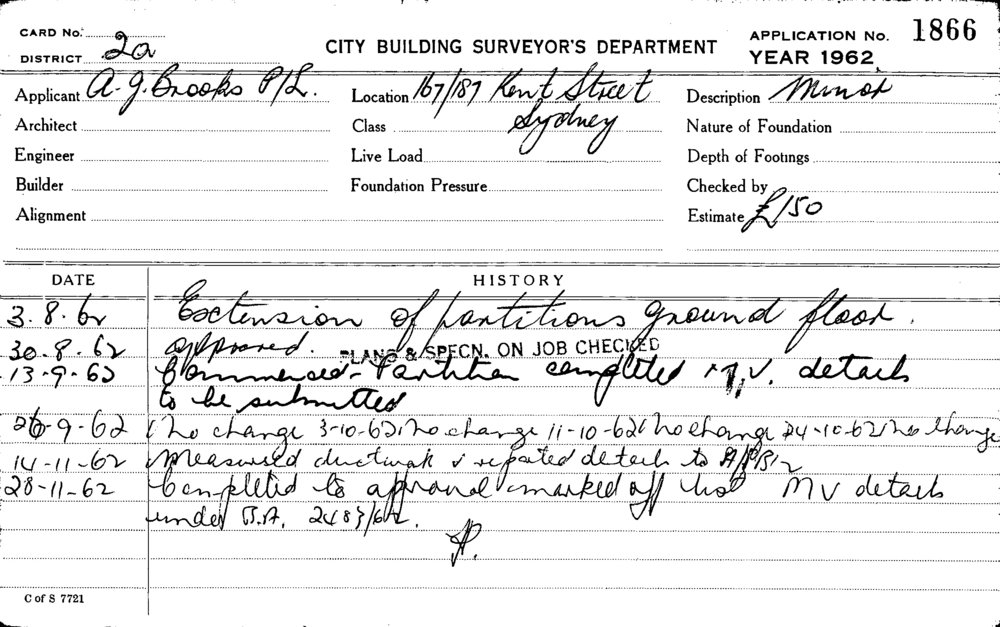 CARD No.
DISTRICT 2a
CITY BUILDING SURVEYOR'S DEPARTMENT
APPLICATION No. 1866
YEAR 1962
Applicant A. G. Brooks P/L. Location 167/187 Kent Street Description Minor
Architect Class Sydney Nature of Foundation
Engineer Live Load Depth of Footings
Builder Foundation Pressure Checked by
Alignment Estimate £150
DATE HISTORY
3.8.62 Extension of partitions ground floor.
30.8.62 approved. PLANS & SPECN. ON JOB CHECKED
13-9-62 Commenced - Partition completed M.V. details
to be submitted
26-9-62 no change 3-10-62 no change 11-10-62 no change 24-10-62 no change
14-11-62 Measured ductwork & reported details to
28-11-62 Completed to approval marked off hot MV details
under B.A. 2483/62.
C of S 7721